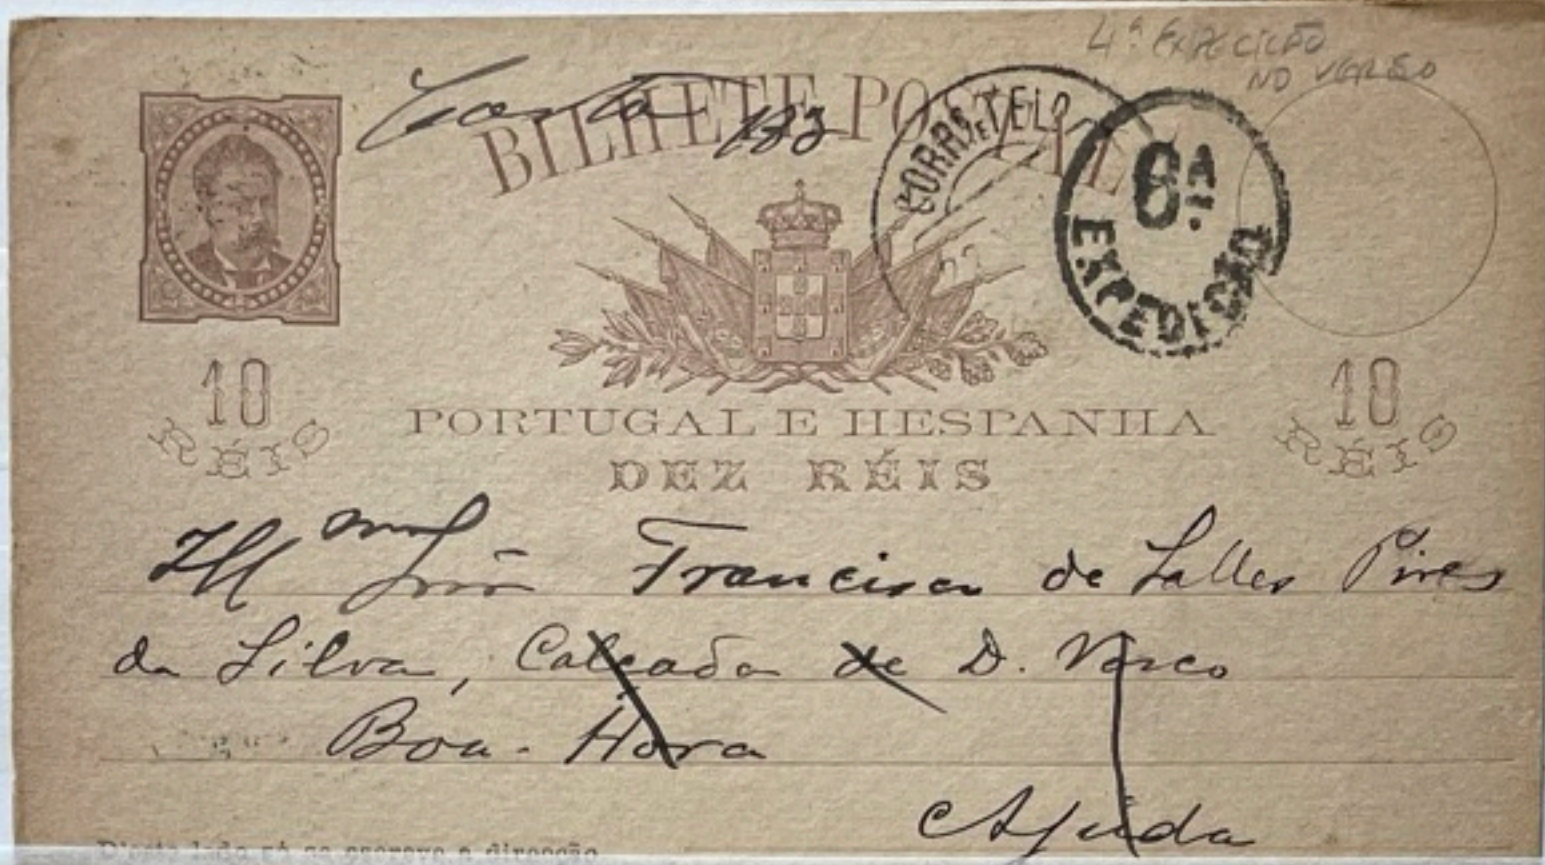 4ª EXPEDIÇÃO
NO VERSO
BILHETE POSTAL
183
CORRº E TELO
6A
EXPEDIÇÃO
10
RÉIS
10
RÉIS
PORTUGAL E HESPANHA
DEZ RÉIS
Illmo Snr Francisco de Salles Pires
da Silva, Calçada de D. Vasco
Boa-Hora
Ajuda
D'este lado só se escreve a direcção